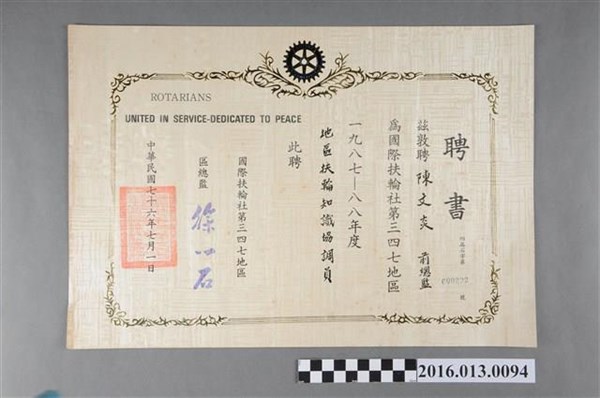 ROTARIANS
UNITED IN SERVICE-DEDICATED TO PEACE
聘書
茲敦聘 陳文炎 前總監
為國際扶輪社第三四七地區
一九八七—八八年度
地區扶輪知識協調員
此聘
國際扶輪社第三四七地區
區總監 徐一石
中華民國七十六年七月一日
2016.013.0094